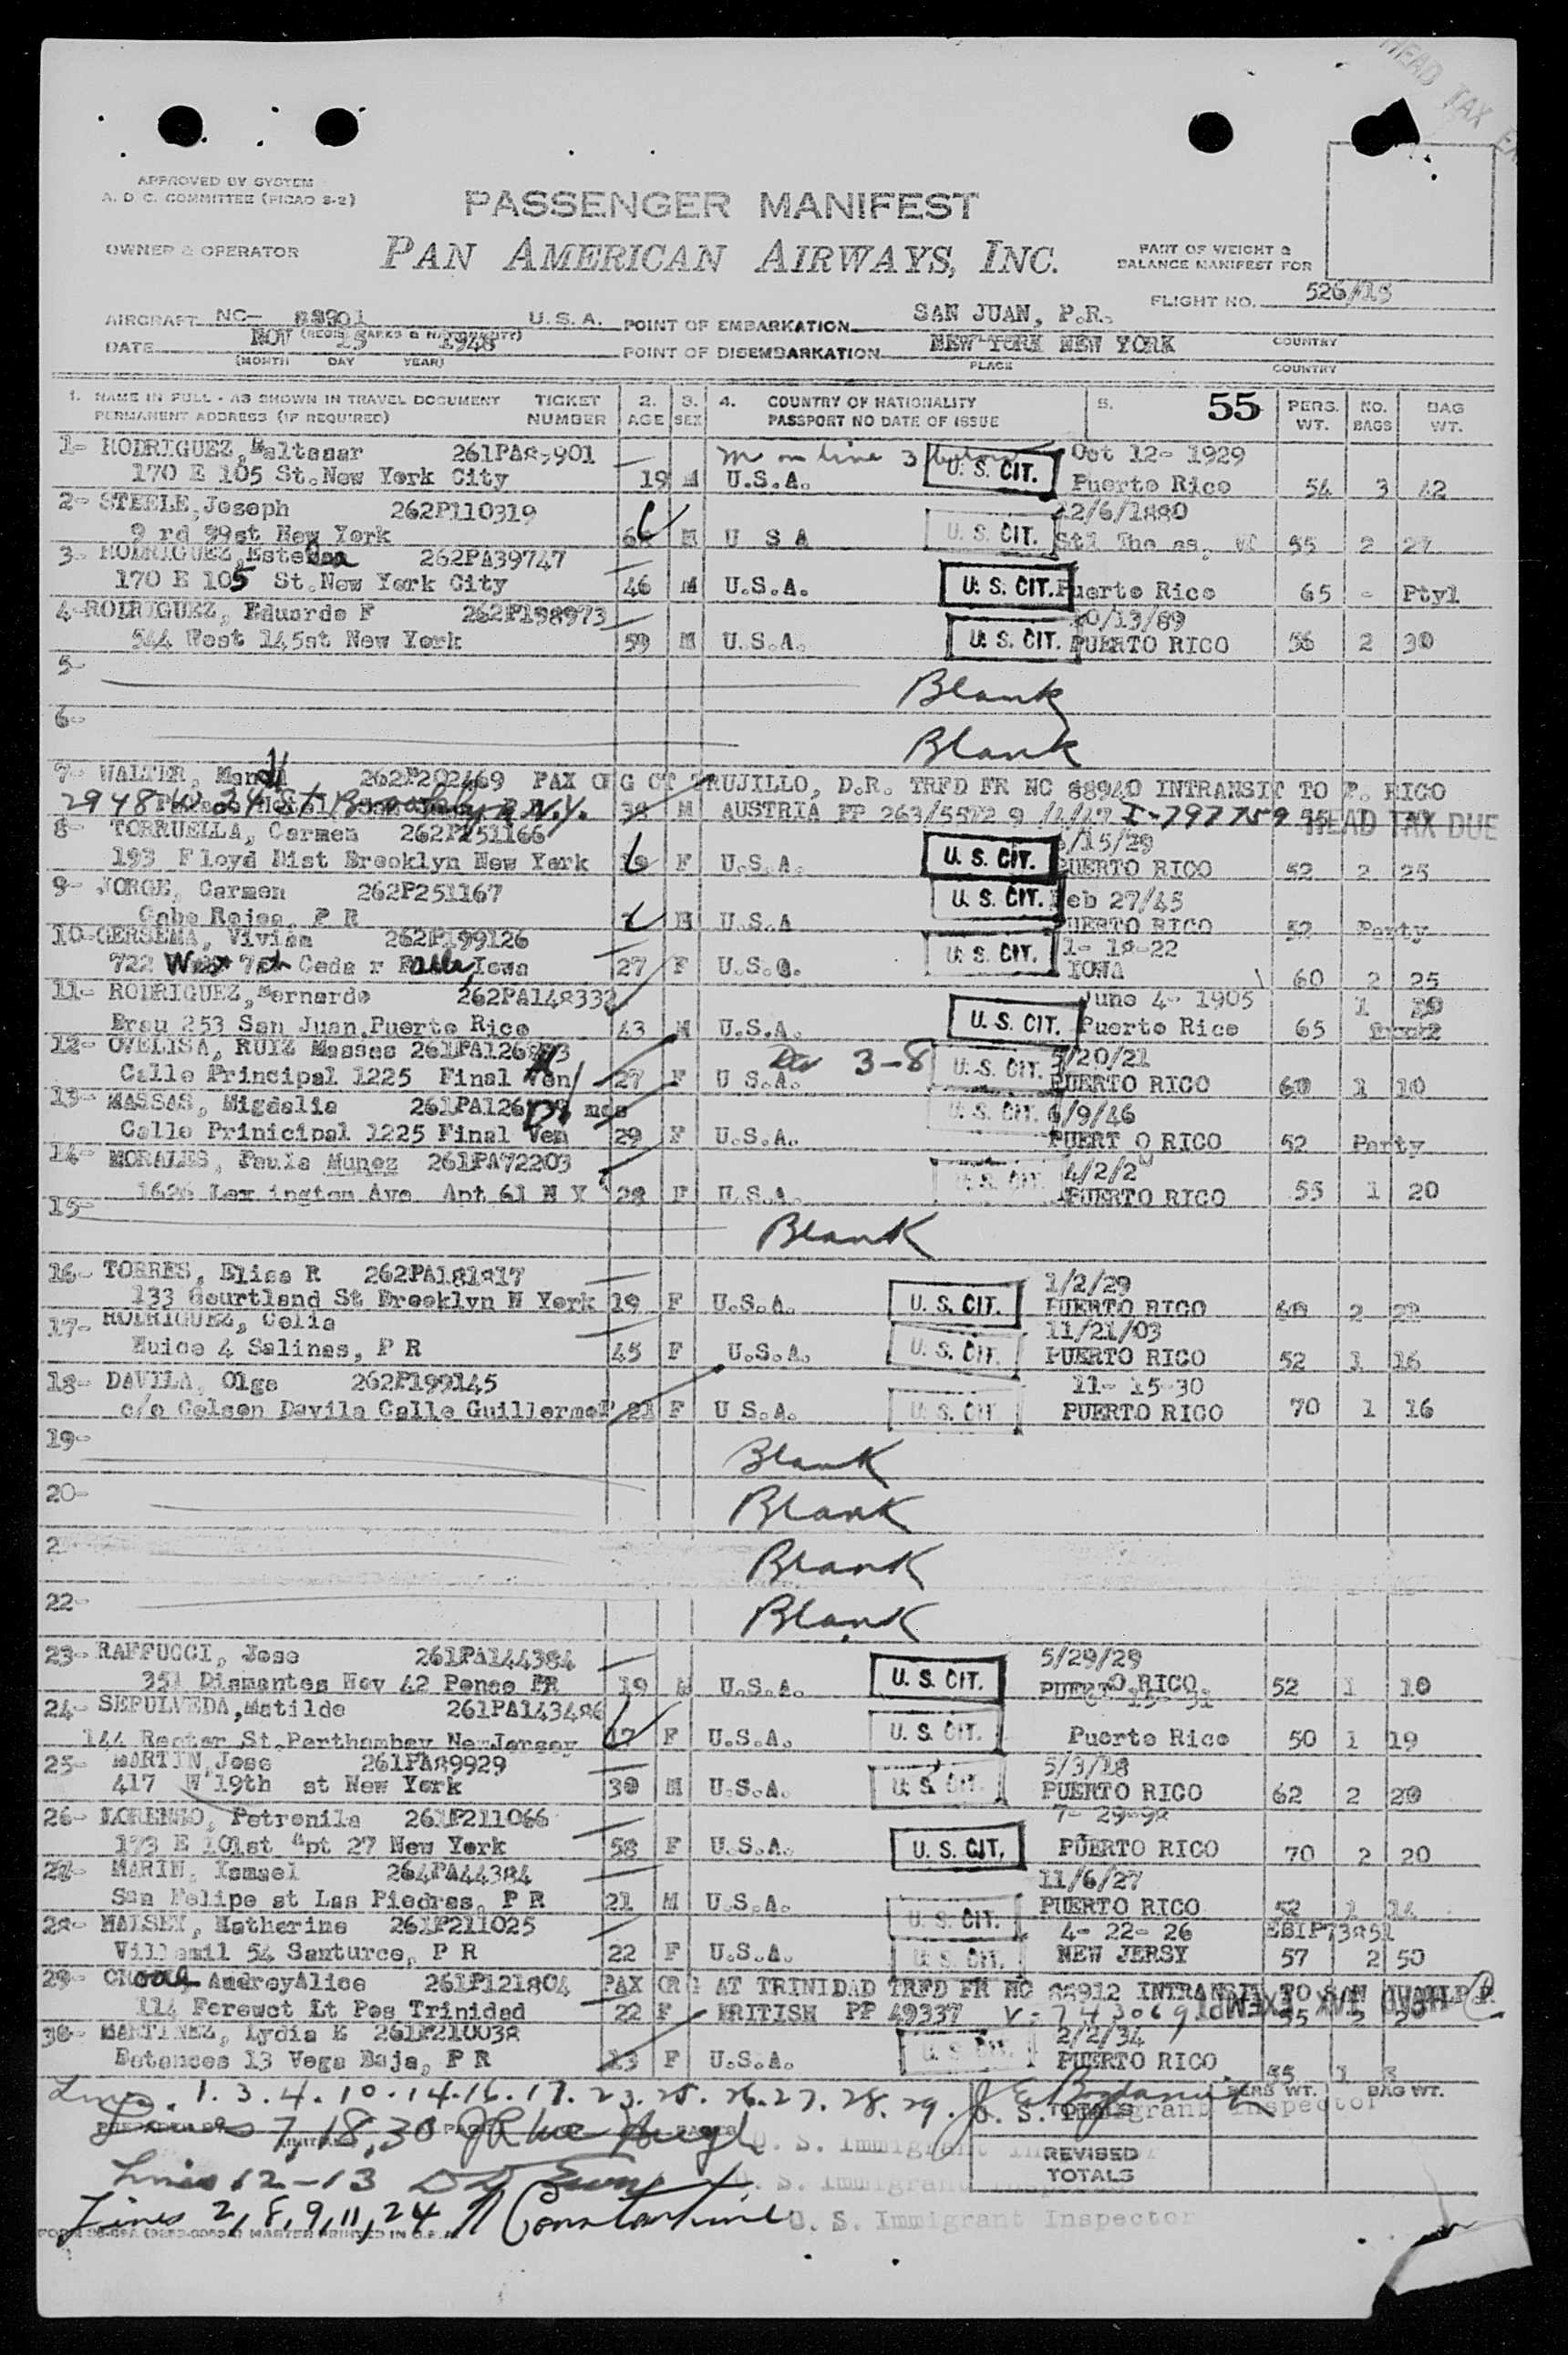 HEAD TAX
APPROVED BY SYSTEM
A. D. C. COMMITTEE (PICAO S-2)
PASSENGER MANIFEST
OWNER & OPERATOR
PAN AMERICAN AIRWAYS, INC.
PART OF WEIGHT &
BALANCE MANIFEST FOR
FLIGHT NO. 526/13
AIRCRAFT NC- 88901 U.S.A.
POINT OF EMBARKATION SAN JUAN, P.R.
DATE NOV 1948
(MONTH DAY YEAR)
POINT OF DISEMBARKATION NEW YORK NEW YORK
PLACE
COUNTRY
COUNTRY
1. NAME IN FULL - AS SHOWN IN TRAVEL DOCUMENT TICKET 2. 3. 4. COUNTRY OF NATIONALITY 5. 55 PERS. NO. BAG
PERMANENT ADDRESS (IF REQUIRED) NUMBER AGE SEX PASSPORT NO DATE OF ISSUE WT. BAGS WT.
1- RODRIGUEZ, Baltasar m on line 3 Oct 12- 1929
170 E 105 St. New York City 19 M U.S.A. U. S. CIT. Puerto Rico 54 3 42
2- STEELE, Joseph 262P110319 12/6/1880
New York M U S A U. S. CIT. 55 2 27
3- RODRIGUEZ, 262PA39747
170 E 105 St. New York City 46 M U.S.A. U. S. CIT. Puerto Rico 65 - Ptyl
4-RODRIGUEZ, Eduardo F 262P198973 10/13/89
544 West 145st New York 59 M U.S.A. U. S. CIT. PUERTO RICO 56 2 30
5- Blank
6- Blank
7- WALTER, 262P202469 PAX TRUJILLO, D.R. TRFD FR NC 88940 INTRANSIT TO P. RICO
2948 W 24 St Brooklyn N.Y. 38 M AUSTRIA PP I-797759 HEAD TAX DUE
8- TORRUELLA, Carmen 262P251166 /15/29
193 Floyd Brooklyn New York F U.S.A. U. S. CIT. PUERTO RICO 52 2 25
9- JORGE, Carmen 262P251167 Feb 27/45
Cabo Rojo, P R U.S.A U. S. CIT. PUERTO RICO 52 Party
10-GERSEMA, Vivian 262P199126 1- 18-22
722 West 7th Cedar Falls, Iowa 27 F U.S.A. U. S. CIT. IOWA 60 2 25
11- RODRIGUEZ, Bernardo 262PA148332 June 4- 1905
Brau 253 San Juan, Puerto Rico 43 M U.S.A. U. S. CIT. Puerto Rico 65
12- OVELISA, RUIZ Massas 3-8 5/20/21
Calle Principal 1225 Final Ven 27 F U S.A. U. S. CIT. PUERTO RICO 60 1 10
13- MASSAS, Migdalia mos 6/9/46
Calle Prinicipal 1225 Final Ven 29 F U.S.A. U. S. CIT. PUERT O RICO 52 Party
14- MORALES, Paula Munez 261PA72203 4/2/2
1626 Lex ington Ave. Apt 61 N Y 28 F U.S.A. U. S. CIT. PUERTO RICO 55 1 20
15- Blank
16- TORRES, Elisa R 262PA181817 1/2/29
133 Courtland St Brooklyn N York 19 F U.S.A. U. S. CIT. PUERTO RICO 60 2 22
17- RODRIGUEZ, Celia 11/21/03
4 Salinas, P R 45 F U.S.A. U. S. CIT. PUERTO RICO 52 1 16
18- DAVILA, Olga 262P199145 11- 15-30
c/o Celson Davila Calle Guillermo 21 F U S.A. U. S. CIT PUERTO RICO 70 1 16
19- Blank
20- Blank
2 Blank
22- Blank
23- RAFFUCCI, Jose 261PA144384 5/29/29
351 Diamantes Nov 42 Ponce PR 19 M U.S.A. U. S. CIT. PUERTO RICO 52 1 10
24- SEPULVEDA, Matilde 261PA143486
144 St. Perthamboy New Jersey 17 F U.S.A. U. S. CIT. Puerto Rico 50 1 19
25- MARTIN, Jose 261PA89929 5/3/18
417 W 19th st New York 30 M U.S.A. U. S. CIT. PUERTO RICO 62 2 20
26- LORENSO, Petronila 261P211066 7- 29-98
173 E 101st Apt 27 New York 58 F U.S.A. U. S. CIT. PUERTO RICO 70 2 20
27- MARIN, Ismael 264PA44384 11/6/27
San Felipe st Las Piedras, P R 21 M U.S.A. U. S. CIT. PUERTO RICO 52 1 14
28- Katherine 261P211025 4- 22- 26
Villamil 54 Santurce, P R 22 F U.S.A. U. S. CIT. NEW JERSY 57 2 50
29- AudreyAlice 261P121804 PAX ORG AT TRINIDAD TRFD FR NC 88912 INTRANSIT TO SAN JUAN P R
114 Pos Trinidad 22 F BRITISH PP 49337 V-743069 HEAD TAX EXEMPT
30- MARTINEZ, Lydia E 261P210038 2/2/34
Betances 13 Vega Baja, P R 13 F U.S.A. U. S. CIT. PUERTO RICO 55 1
Lines. 1. 3. 4. 10. 14. 16. 17. 23. 25. 26. 27. 28. 29. PERS WT. BAG WT.
7, 18, 30 U. S. Immigrant Inspector
REVISED
TOTALS
Lines 12-13 U. S. Immigrant Inspector
Lines 2, 8, 9, 11, 24 Constantine U. S. Immigrant Inspector